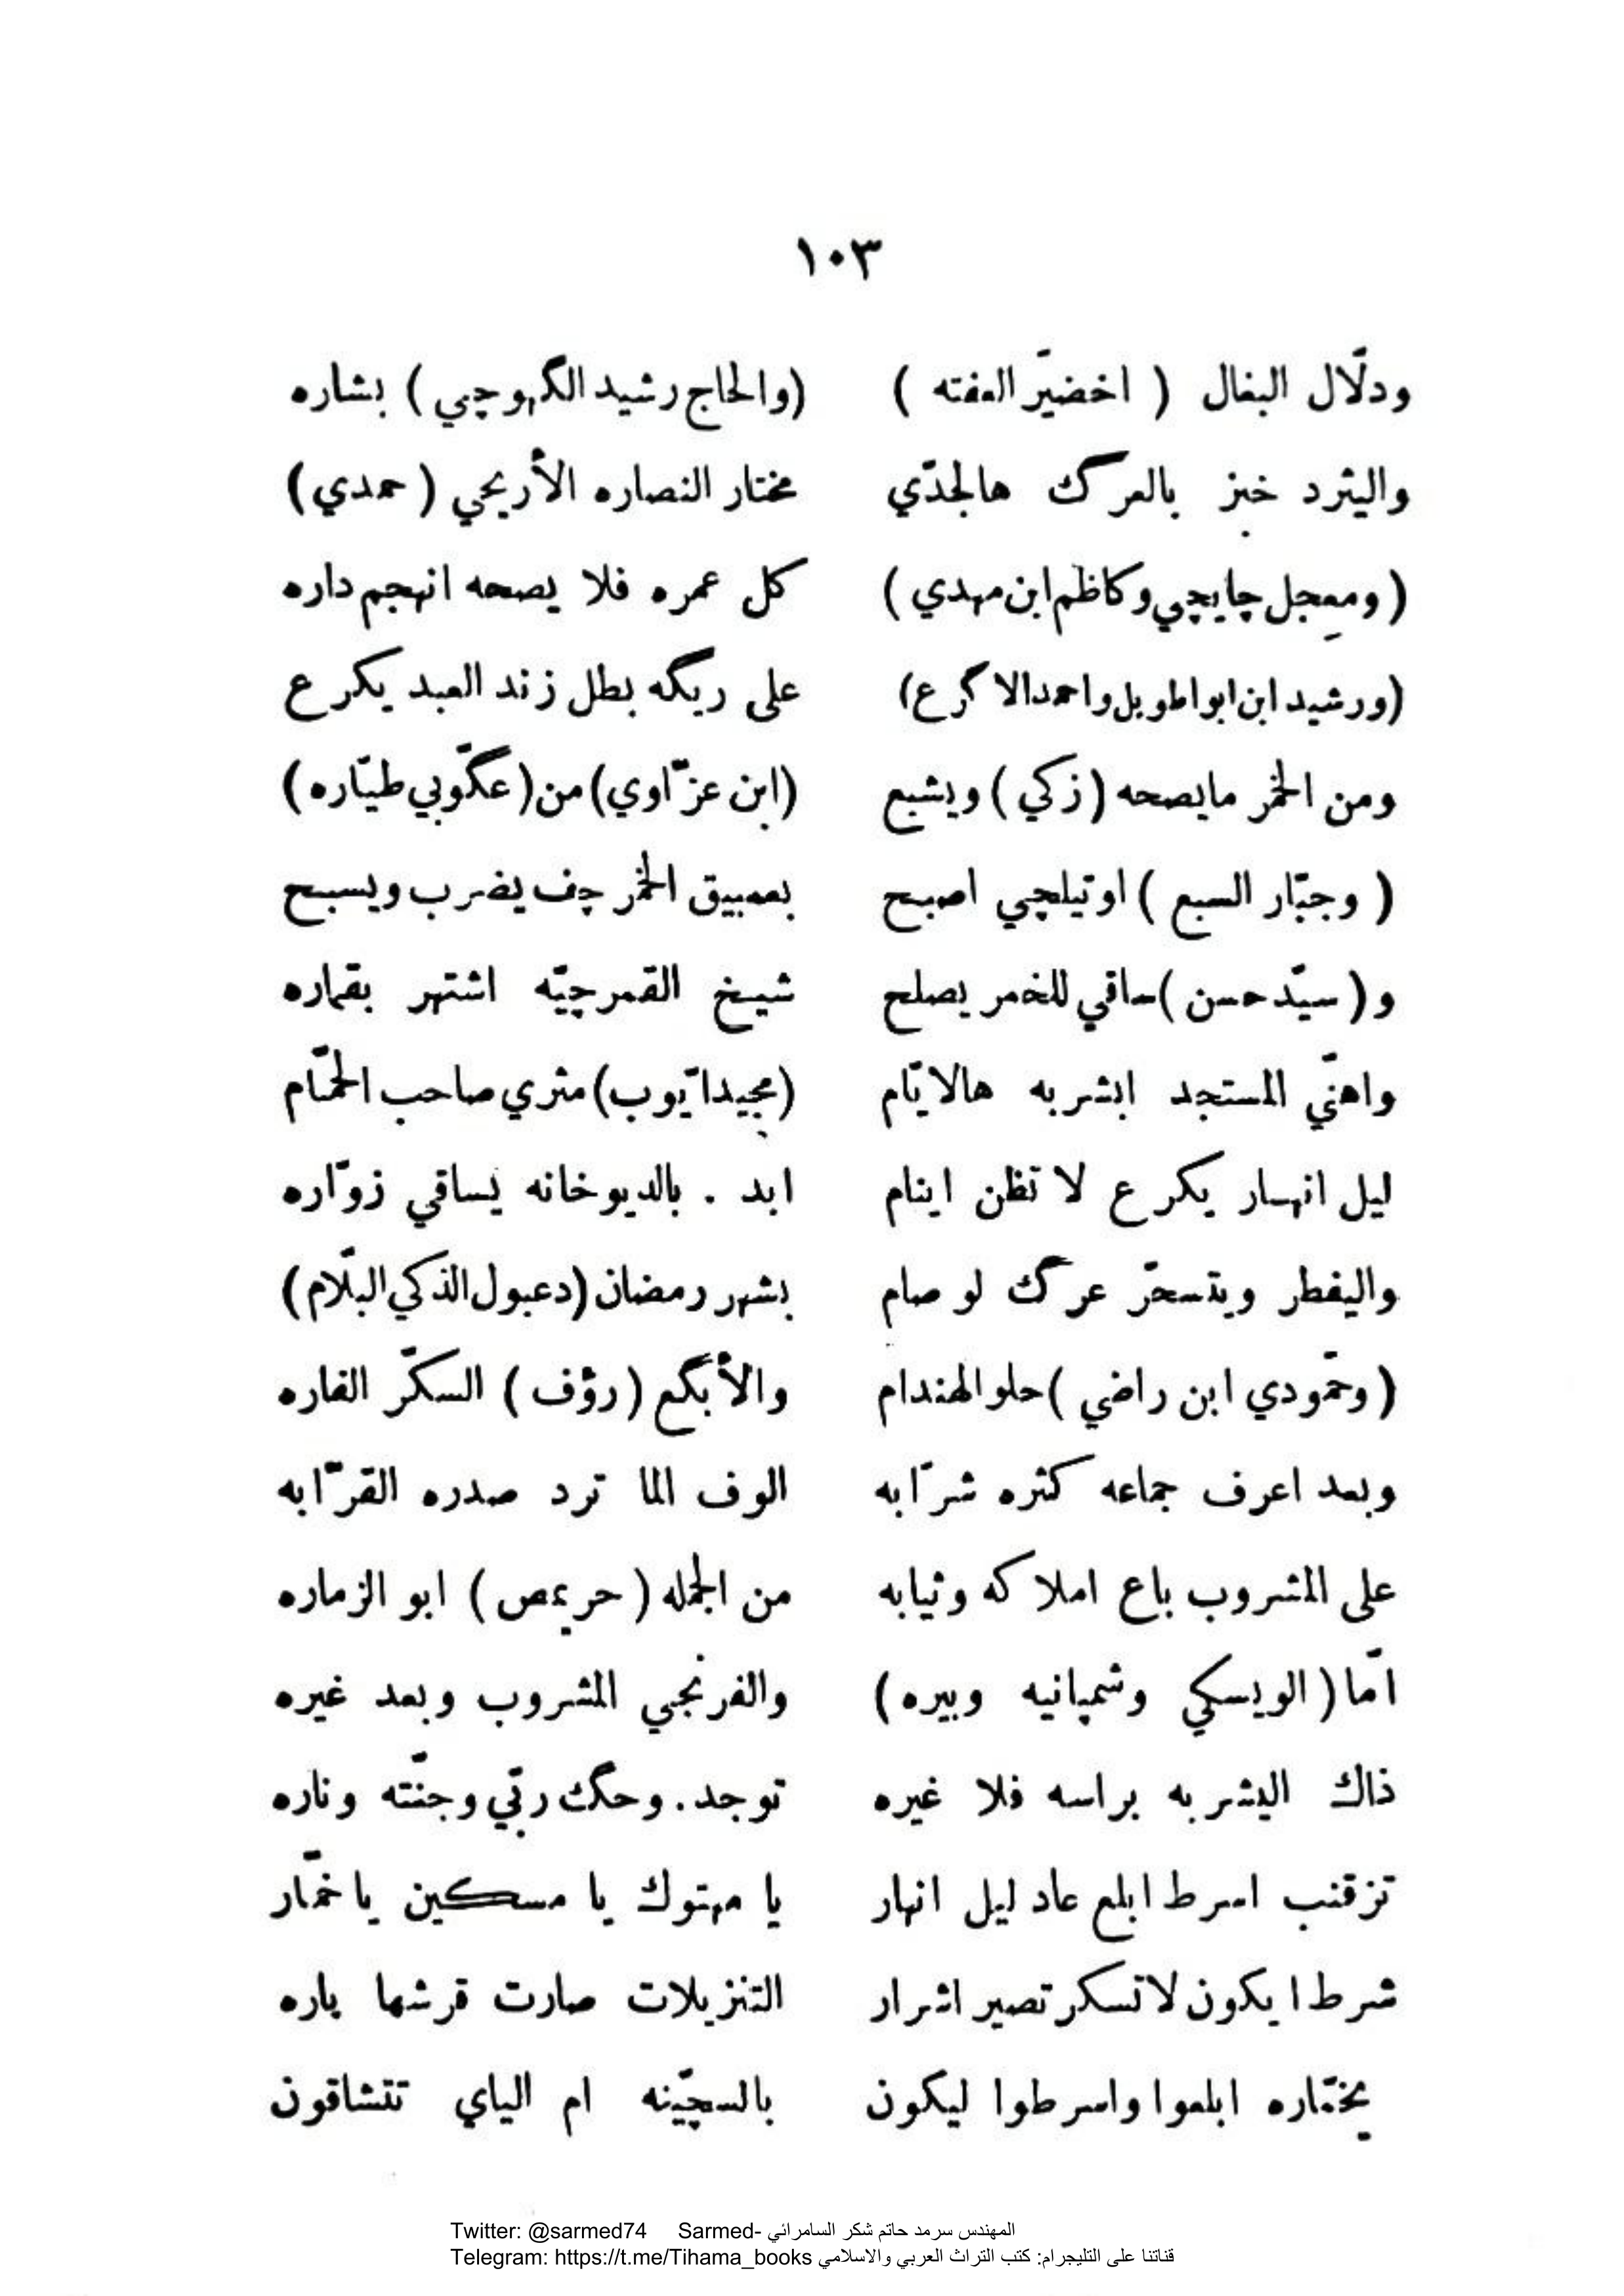 ١٠٣
ودلّال البغال ( اخضيّر العفته ) (والحاج رشيد الگهوچي) بشاره
واليثرد خبز بالعرگ هالجدّي مختار النصاره الأريحي ( حمدي )
( ومعجل چايچي وكاظم ابن مهدي ) كل عمره فلا يصحه انهجم داره
(ورشيد ابن ابو اطويل واحمد الاگرع) على ريگه بطل زند العبد يكرع
ومن الخمر مايصحه (زكي) ويشبع (ابن عزّاوي) من (عگّوبي طيّاره)
( وجبّار السبع ) اوتيلچي اصبح بعميق الخمر چف يضرب ويسبح
و ( سيّد حسن ) ساقي للخمر يصلح شيخ القمرچيّه اشتهر بقماره
واهنّي المستجد ابشربه هالايّام (مجيد ايّوب) مثري صاحب الحمّام
ليل انهار يكرع لا تظن اينام ابد . بالديوخانه يساقي زوّاره
واليفطر ويتسحّر عرگ لو صام بشهر رمضان (دعبول الذكي البلّام)
( وحمّودي ابن راضي ) حلو الهندام والأبگع ( رؤف ) السكّر الفاره
وبعد اعرف جماعه كثره شرّابه الوف الما ترد صدره القرّابه
على المشروب باع املاكه وثيابه من الجمله ( حريمص ) ابو الزماره
امّا ( الويسكي وشمپانيه وبيره ) والفرنجي المشروب وبعد غيره
ذاك اليشربه براسه فلا غيره توجد . وحگ ربّي وجنّته وناره
تزقنب اسرط ابلع عاد ليل انهار يا مهتوك يا مسكين يا خمّار
شرط ايكون لاتسكر تصير اشرار التنزيلات صارت قرشها باره
يخمّاره ابلعوا واسرطوا ليكون بالسچّينه ام الياي تتشاقون
Twitter: @sarmed74 Sarmed- المهندس سرمد حاتم شكر السامرائي
Telegram: https://t.me/Tihama_books قناتنا على التليجرام: كتب التراث العربي والاسلامي